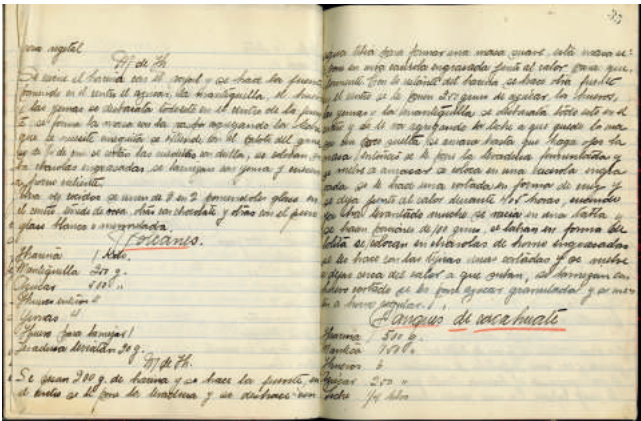 para vegetal
M de H.
Se cierne el harina con el royal y se hace la fuente
poniendo en el centro el azúcar, la mantequilla, el huevo
y las yemas se desbarata todo esto en el centro de la fuen
te, se forma la masa con la
que se necesite
se cortan las rueditas con dullo, se colocan
en charolas engrasadas, se barnizan con yema y
a horno caliente.
de cocidos se unen de 2 en 2 poniendole glass en
el centro unidas de rosa, otras con chocolate y otras con el puro
glass blanco
Volcanes.
Harina 1 kilo.
Mantequilla 200 g.
Azúcar 500 "
Huevos enteros 4
Yemas 4
Huevo para barnizar 1
Levadura leviatán 30 g.
M de H.
Se pesan 200 g. de harina y se hace la fuente, en
el centro se le pone la levadura y se deshace con
33
agua tibia para formar una masa suave, esta masa se
pone en una cazuela engrasada junto al calor para que
fermente. Con la restante del harina, se hace otra fuente
y el centro se le ponen 200 gramos de azúcar, los huevos,
las yemas y la mantequilla se desbarata todo esto en el
centro y se le va agregando la leche a que quede la ma
sa un poco suelta, se amasa hasta que haga ojos la
masa, entonces se le pone la levadura fermentada y
se vuelve a amasar se coloca en una cazuela engra
sada, se le hace una cortada en forma de cruz y
se deja junto al calor durante horas, cuando
ya está levantado mucho se vacia en una tabla y
se hacen porciones de 100 gramos, se labran en forma de
bolita se colocan en charolas de horno engrasadas
se les hace con las tijeras unas cortadas y se vuelve
a dejar cerca del calor a que suban, se barnizan con
huevo cortado se les pone azúcar granulada y se me
ten a horno regular.
Panques de cacahuate
Harina 500 g.
Manteca
Huevos 6
Azucar 200 "
Leche 1/4 litro